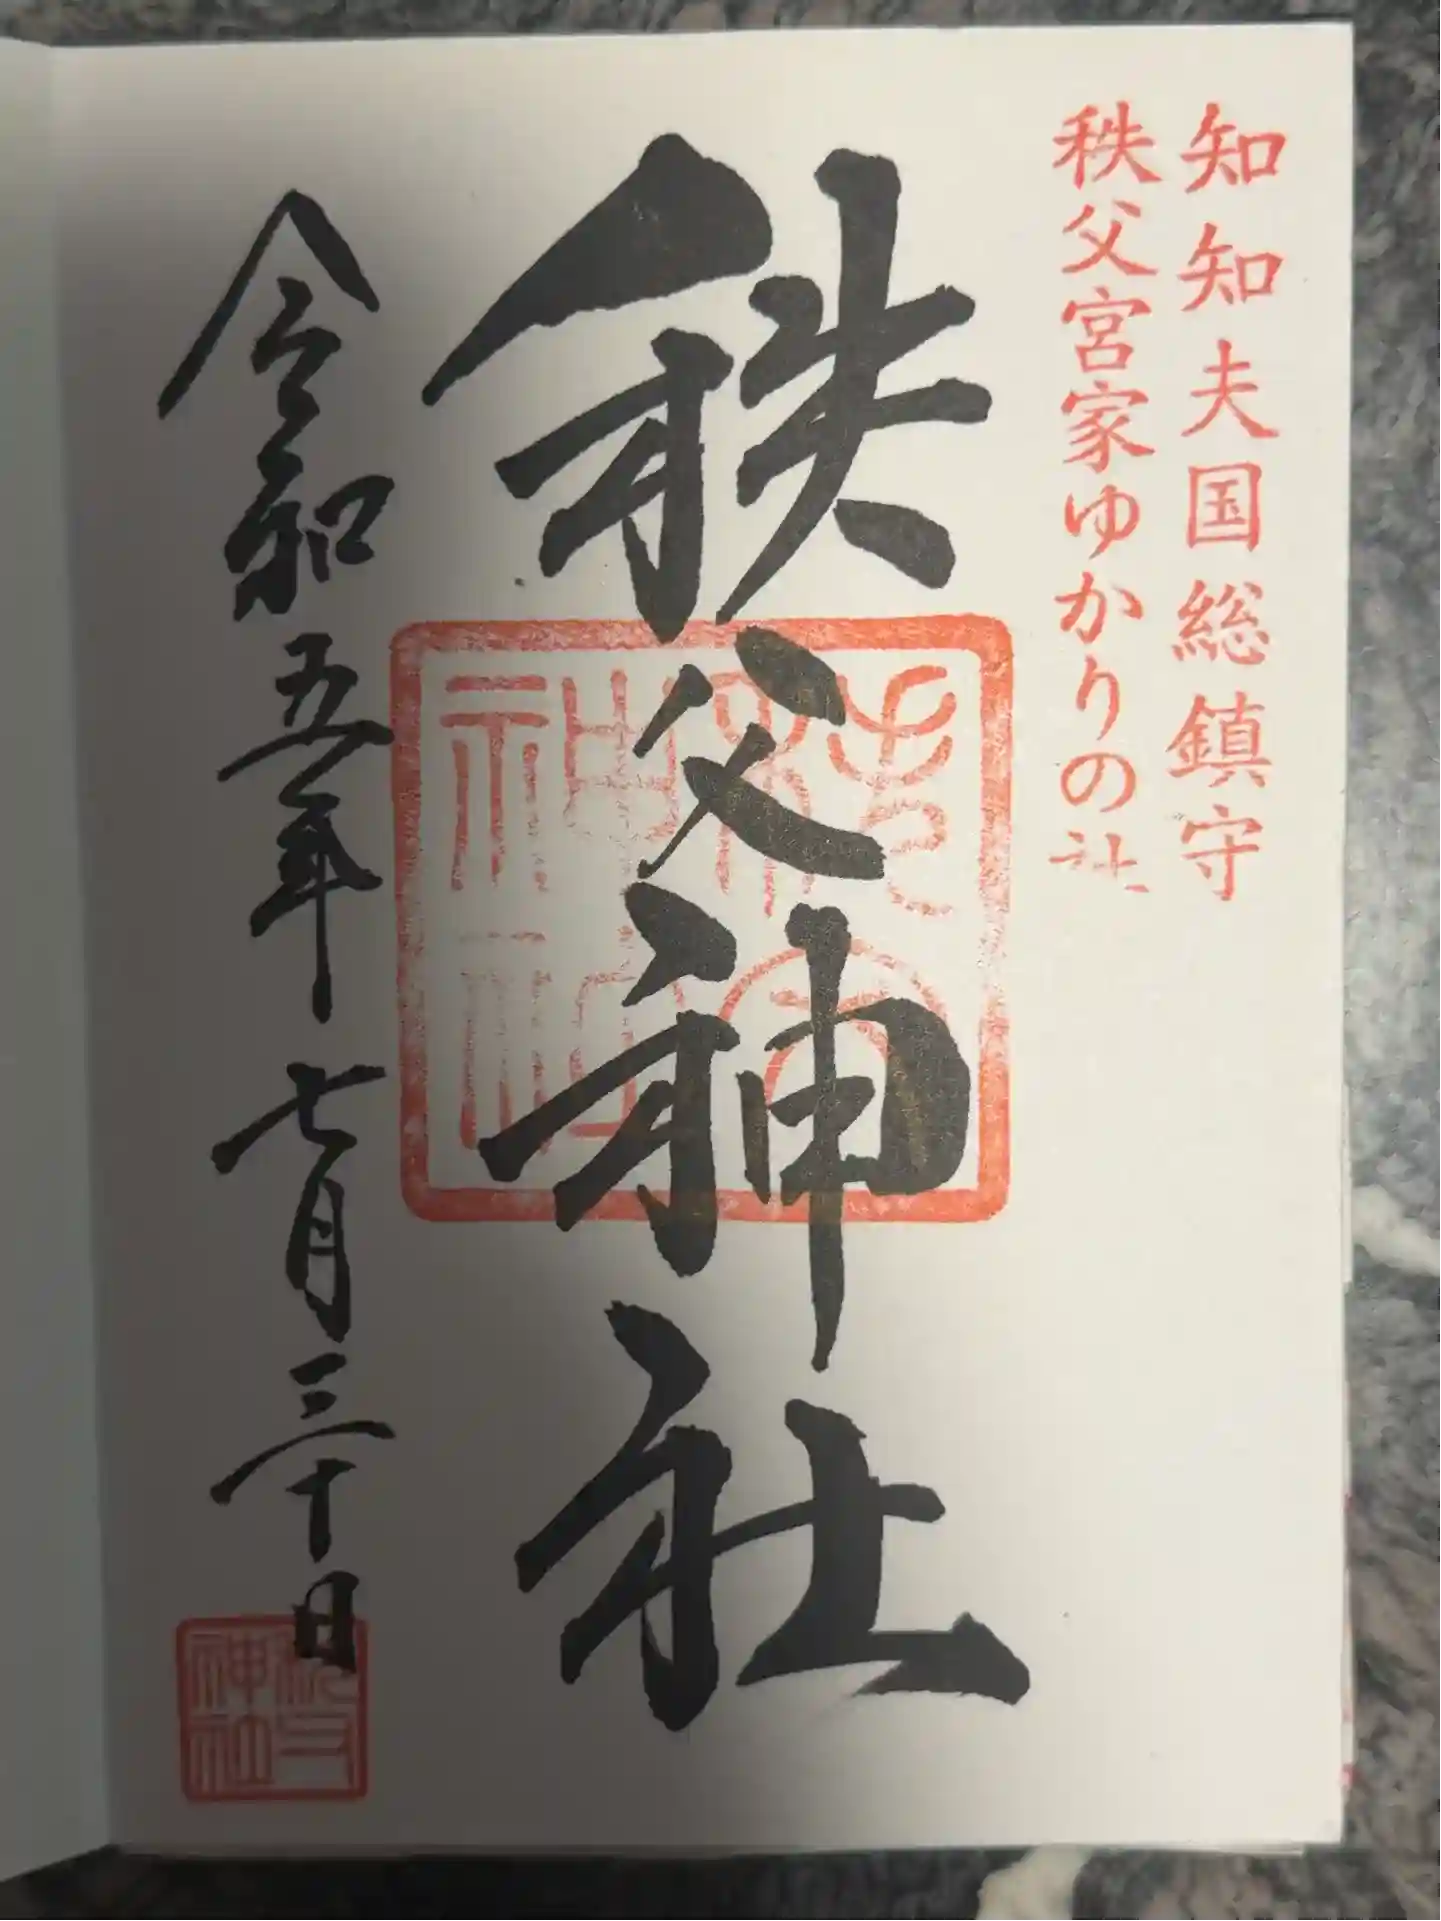 知知夫国総鎮守
秩父宮家ゆかりの社
秩父神社
令和五年七月三十日
秩父神社
秩父神社